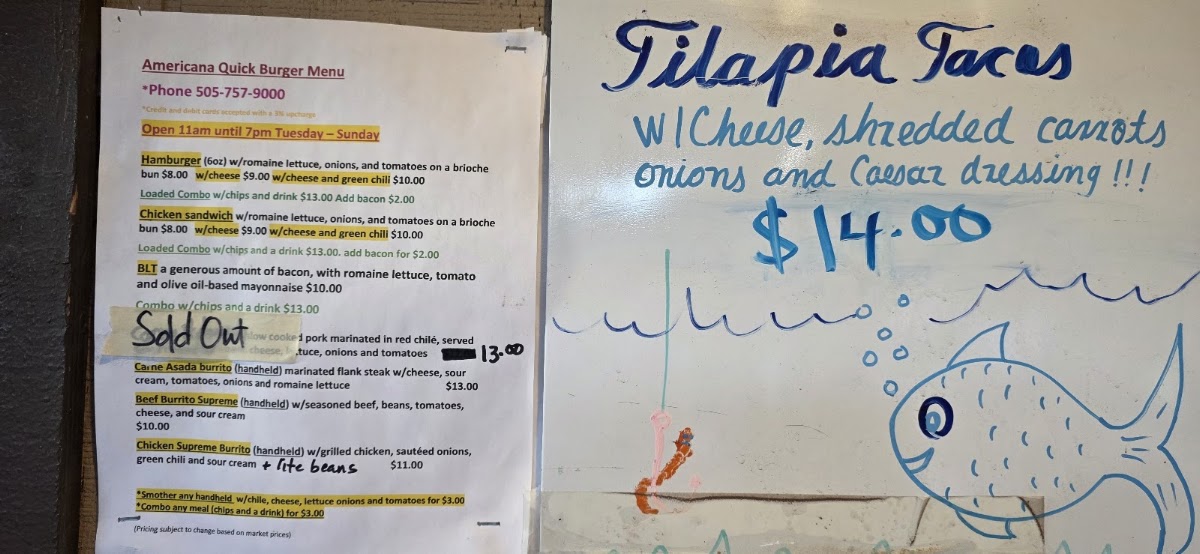 Americana Quick Burger Menu
*Phone 505-757-9000
*Credit and debit cards accepted with a 3% upcharge
Open 11am until 7pm Tuesday – Sunday
Hamburger (6oz) w/romaine lettuce, onions, and tomatoes on a brioche
bun $8.00 w/cheese $9.00 w/cheese and green chili $10.00
Loaded Combo w/chips and drink $13.00 Add bacon $2.00
Chicken sandwich w/romaine lettuce, onions, and tomatoes on a brioche
bun $8.00 w/cheese $9.00 w/cheese and green chili $10.00
Loaded Combo w/chips and a drink $13.00. add bacon for $2.00
BLT a generous amount of bacon, with romaine lettuce, tomato
and olive oil-based mayonnaise $10.00
Combo w/chips and a drink $13.00
Sold Out
cooked pork marinated in red chilé, served
cheese, lettuce, onions and tomatoes 13.00
Carne Asada burrito (handheld) marinated flank steak w/cheese, sour
cream, tomatoes, onions and romaine lettuce $13.00
Beef Burrito Supreme (handheld) w/seasoned beef, beans, tomatoes,
cheese, and sour cream
$10.00
Chicken Supreme Burrito (handheld) w/grilled chicken, sautéed onions,
green chili and sour cream + rite beans $11.00
*Smother any handheld w/chile, cheese, lettuce onions and tomatoes for $3.00
*Combo any meal (chips and a drink) for $3.00
(Pricing subject to change based on market prices)
Tilapia Tacos
W/Cheese, shredded carrots
onions and Caesar dressing!!!
$14.00